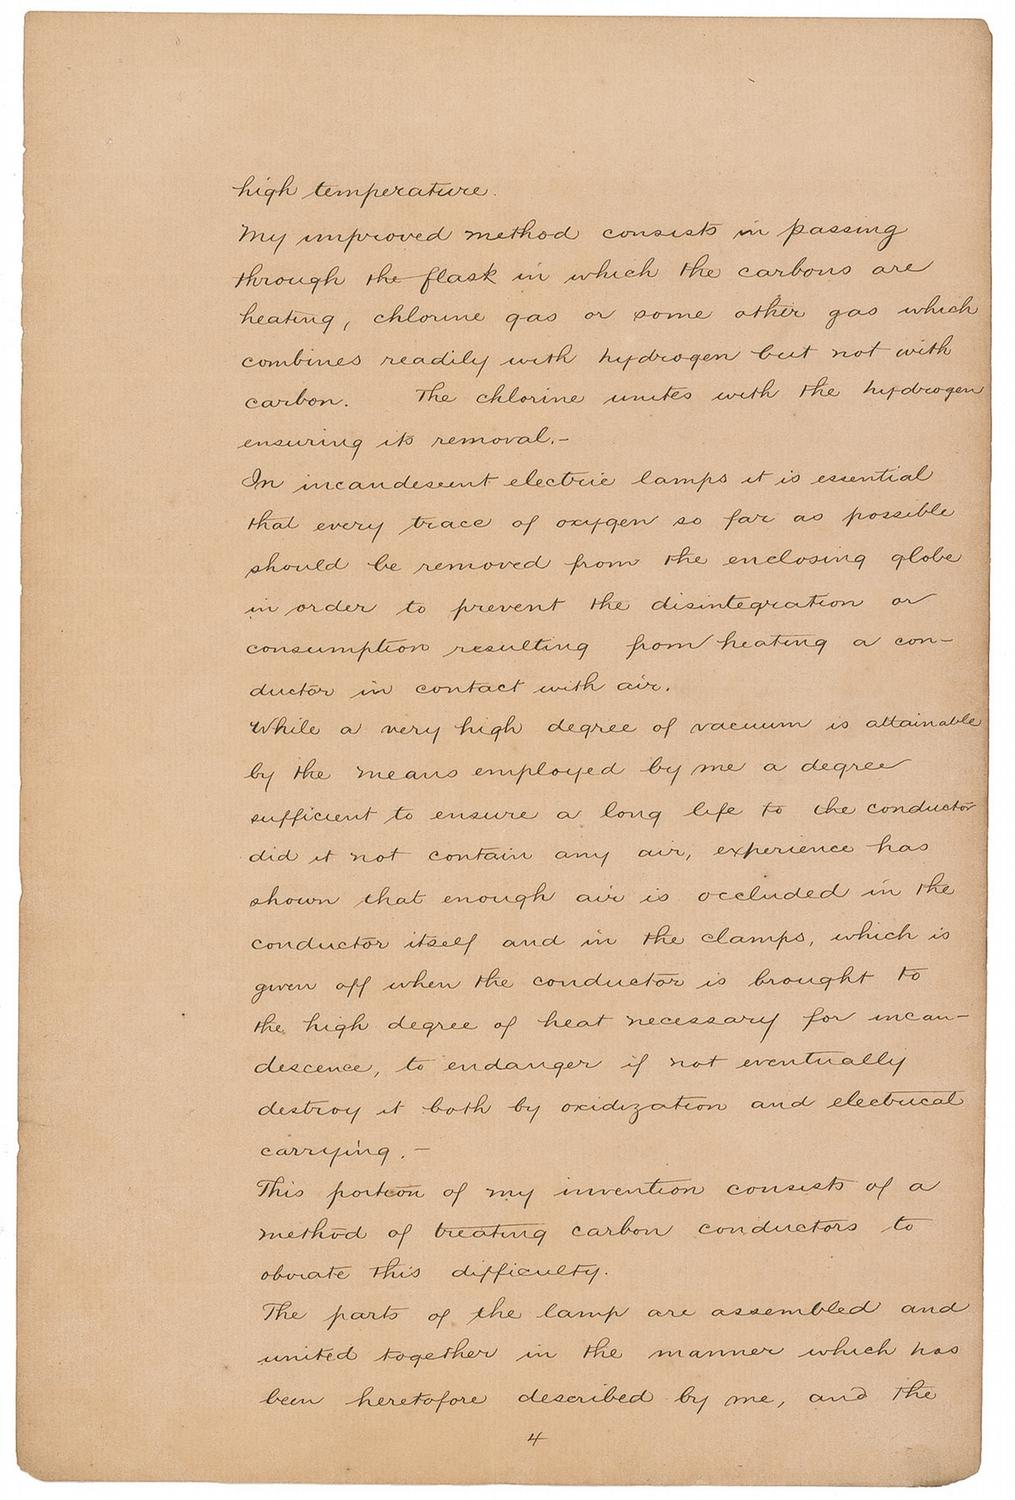 high temperature.
My improved method consists in passing
through the flask in which the carbons are
heating, chlorine gas or some other gas which
combines readily with hydrogen but not with
carbon. The chlorine unites with the hydrogen
ensuring its removal.—
In incandescent electric lamps it is essential
that every trace of oxygen so far as possible
should be removed from the enclosing globe
in order to prevent the disintegration or
consumption resulting from heating a con-
ductor in contact with air.
While a very high degree of vacuum is attainable
by the means employed by me a degree
sufficient to ensure a long life to the conductor
did it not contain any air, experience has
shown that enough air is occluded in the
conductor itself and in the clamps, which is
given off when the conductor is brought to
the high degree of heat necessary for incan-
descence, to endanger if not eventually
destroy it both by oxidization and electrical
carrying.—
This portion of my invention consists of a
method of treating carbon conductors to
obviate this difficulty.
The parts of the lamp are assembled and
united together in the manner which has
been heretofore described by me, and the
4